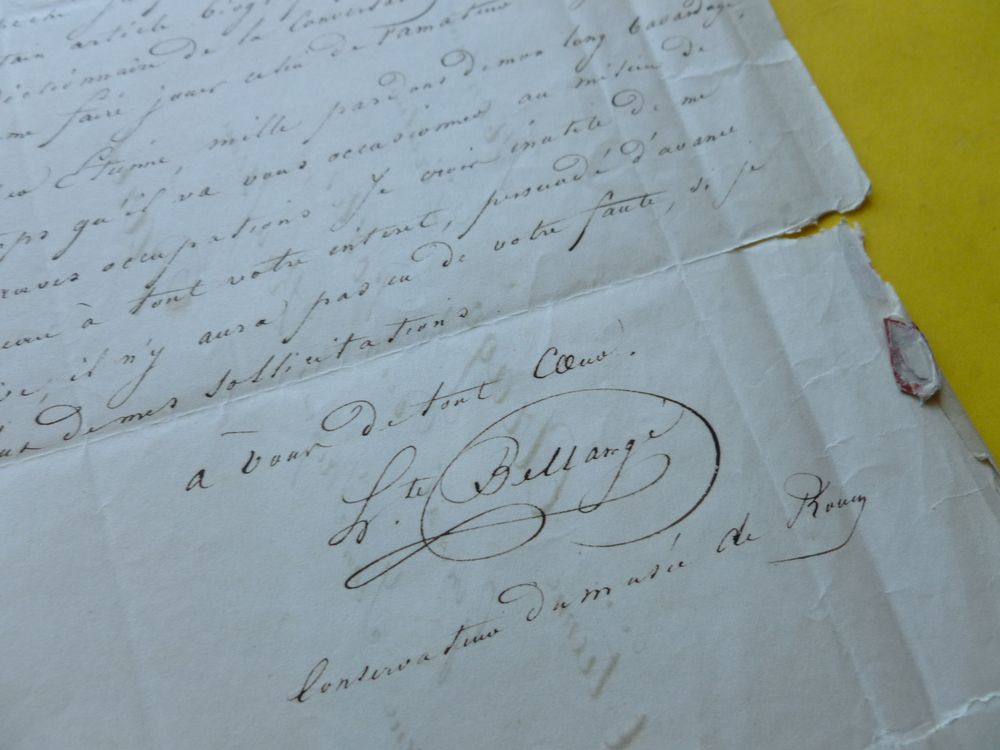 article biog
dictionnaire de la Conversa
me faire jouer celui de l'amateur
Etienne, mille pardons de mon long bavardage,
qu'il va vous occasionner au milieu de
occupations Je crois inutile de me
à tout votre interet, persuadé d'avance
il n'y aura pas eu de votre faute, si je
de mes sollicitations.
à vous de tout Cœur.
H.te Bellangé
Conservateur du musée de Rouen